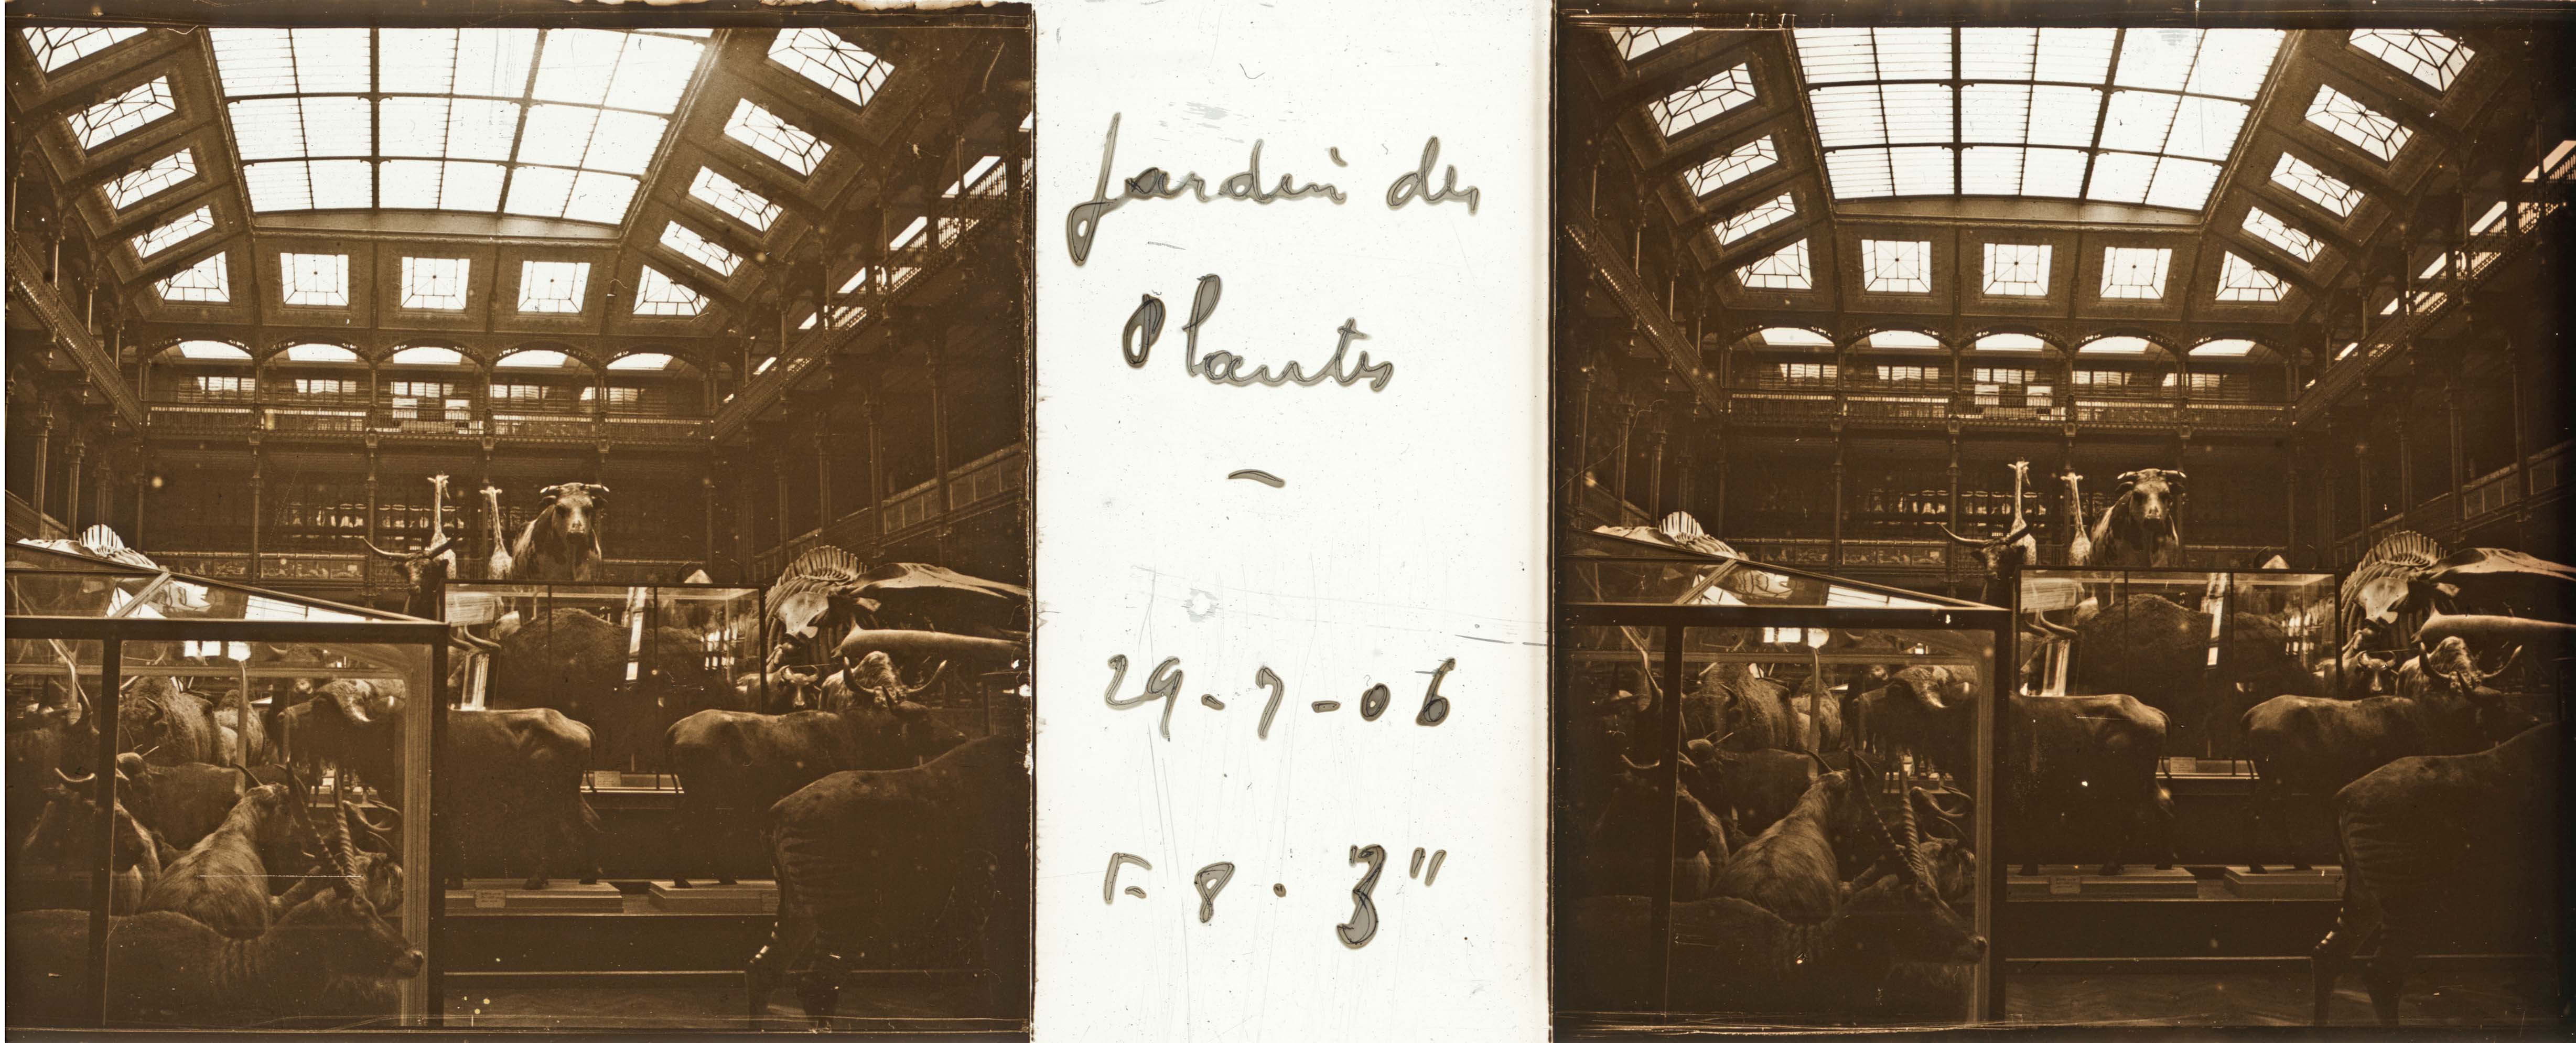 Jardin des
Plantes
–
29-7-06
F 8 . 3"